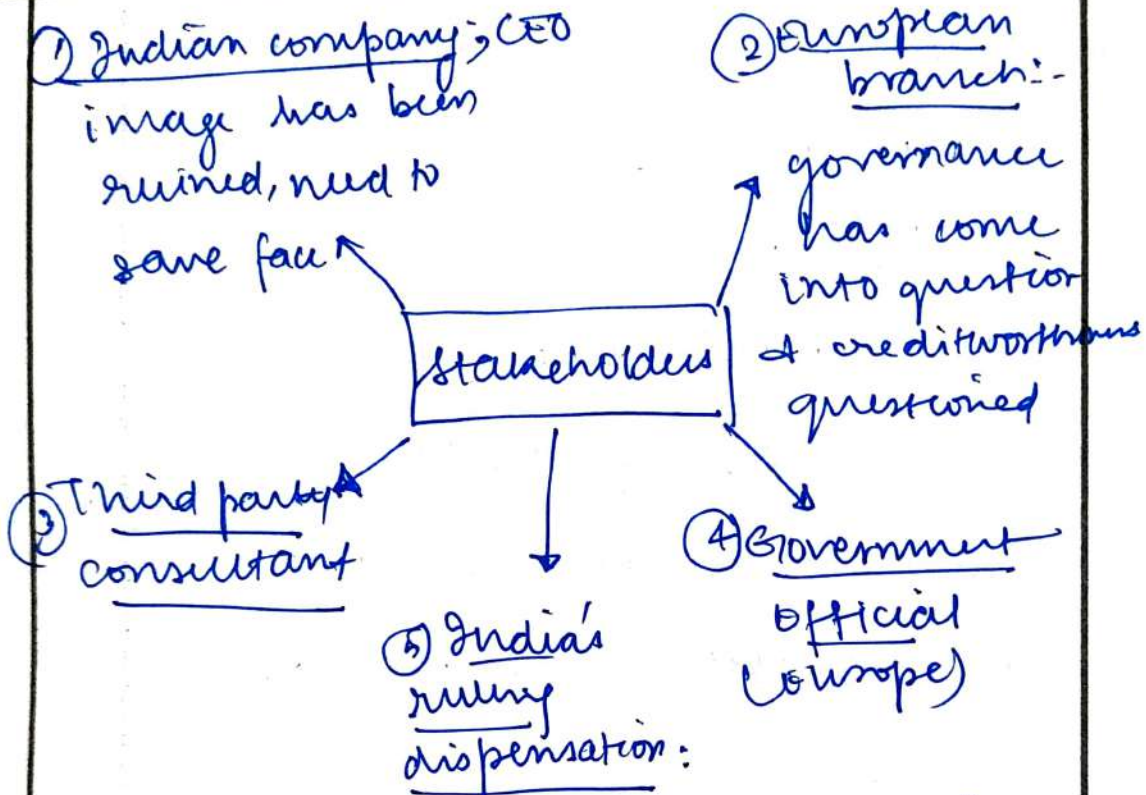 ① Indian company; CEO
image has been
ruined, need to
save face
② European
branch:-
governance
has come
into question
& creditworthiness
questioned
Stakeholders
③ Third party
consultant
④ Government
official
(europe)
⑤ India's
ruling
dispensation: